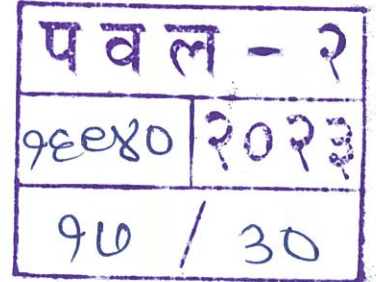 पवल - २
१६९४० २०२३
१७ / ३०